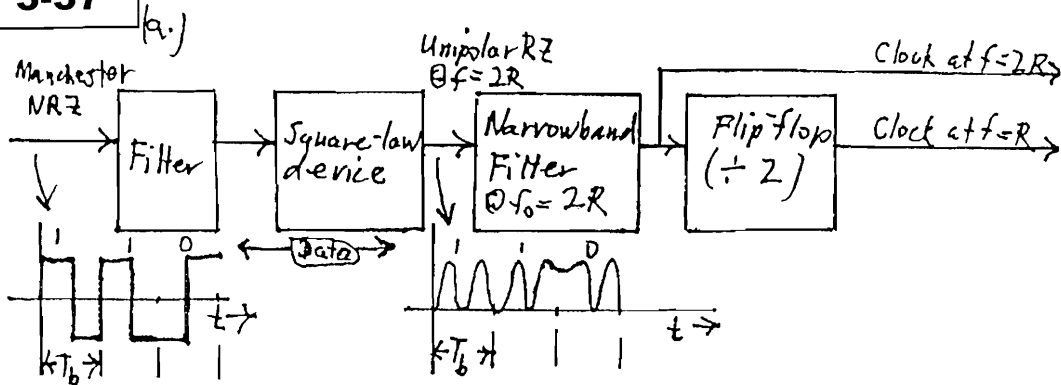 3-37
(a.)
Manchester
NRZ
Filter
Square-law
device
Unipolar RZ
@ f=2R
Narrowband
Filter
@ f₀ = 2R
Flip-flop
(÷ 2)
Clock at f=2R
Clock at f=R
Data
1 1 0
t →
←T_b→
1 1 0
t →
←T_b→